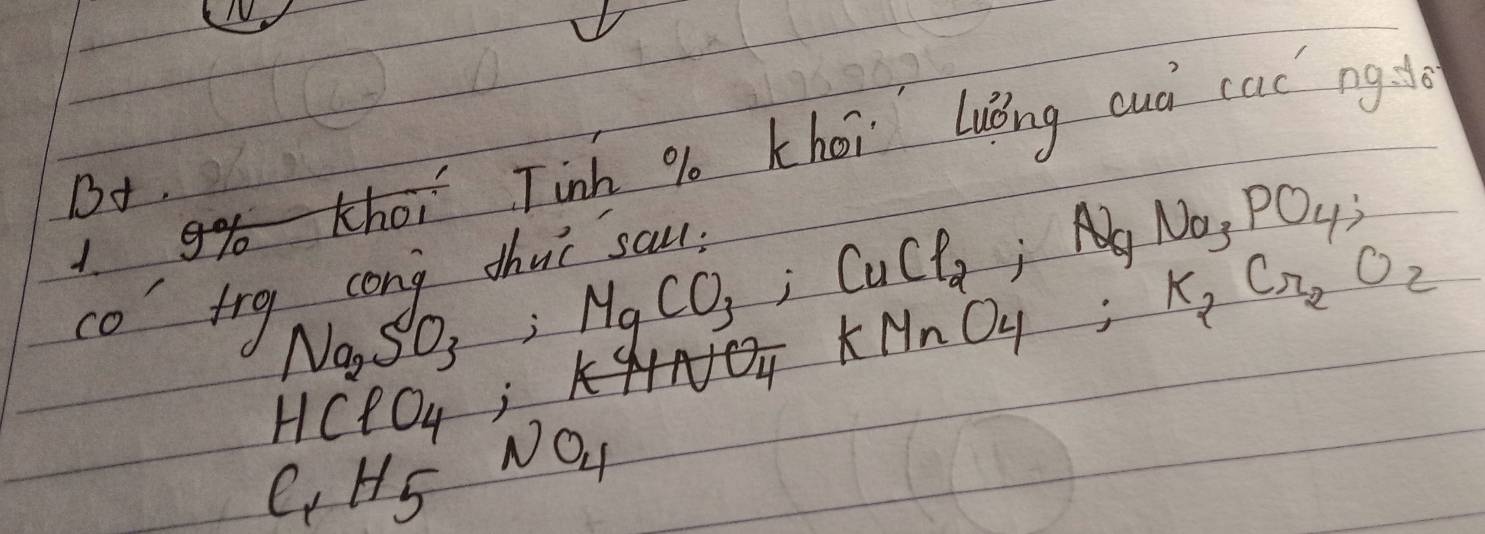 N
Bt.
1. 9% khối Tính % khối lượng của các ng.tố
có trg công thức sau:
Na₂SO₃ ; MgCO₃ ; CuCl₂ ; Na₃PO₄ ;
HClO₄ ; KHNO₄ KMnO₄ ; K₂Cr₂O₂
H₅NO₄